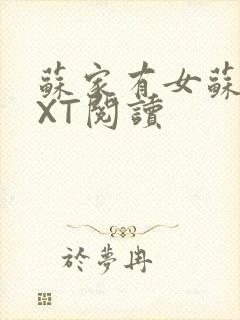 蘇家有女蘇
XT閱讀
於夢冉